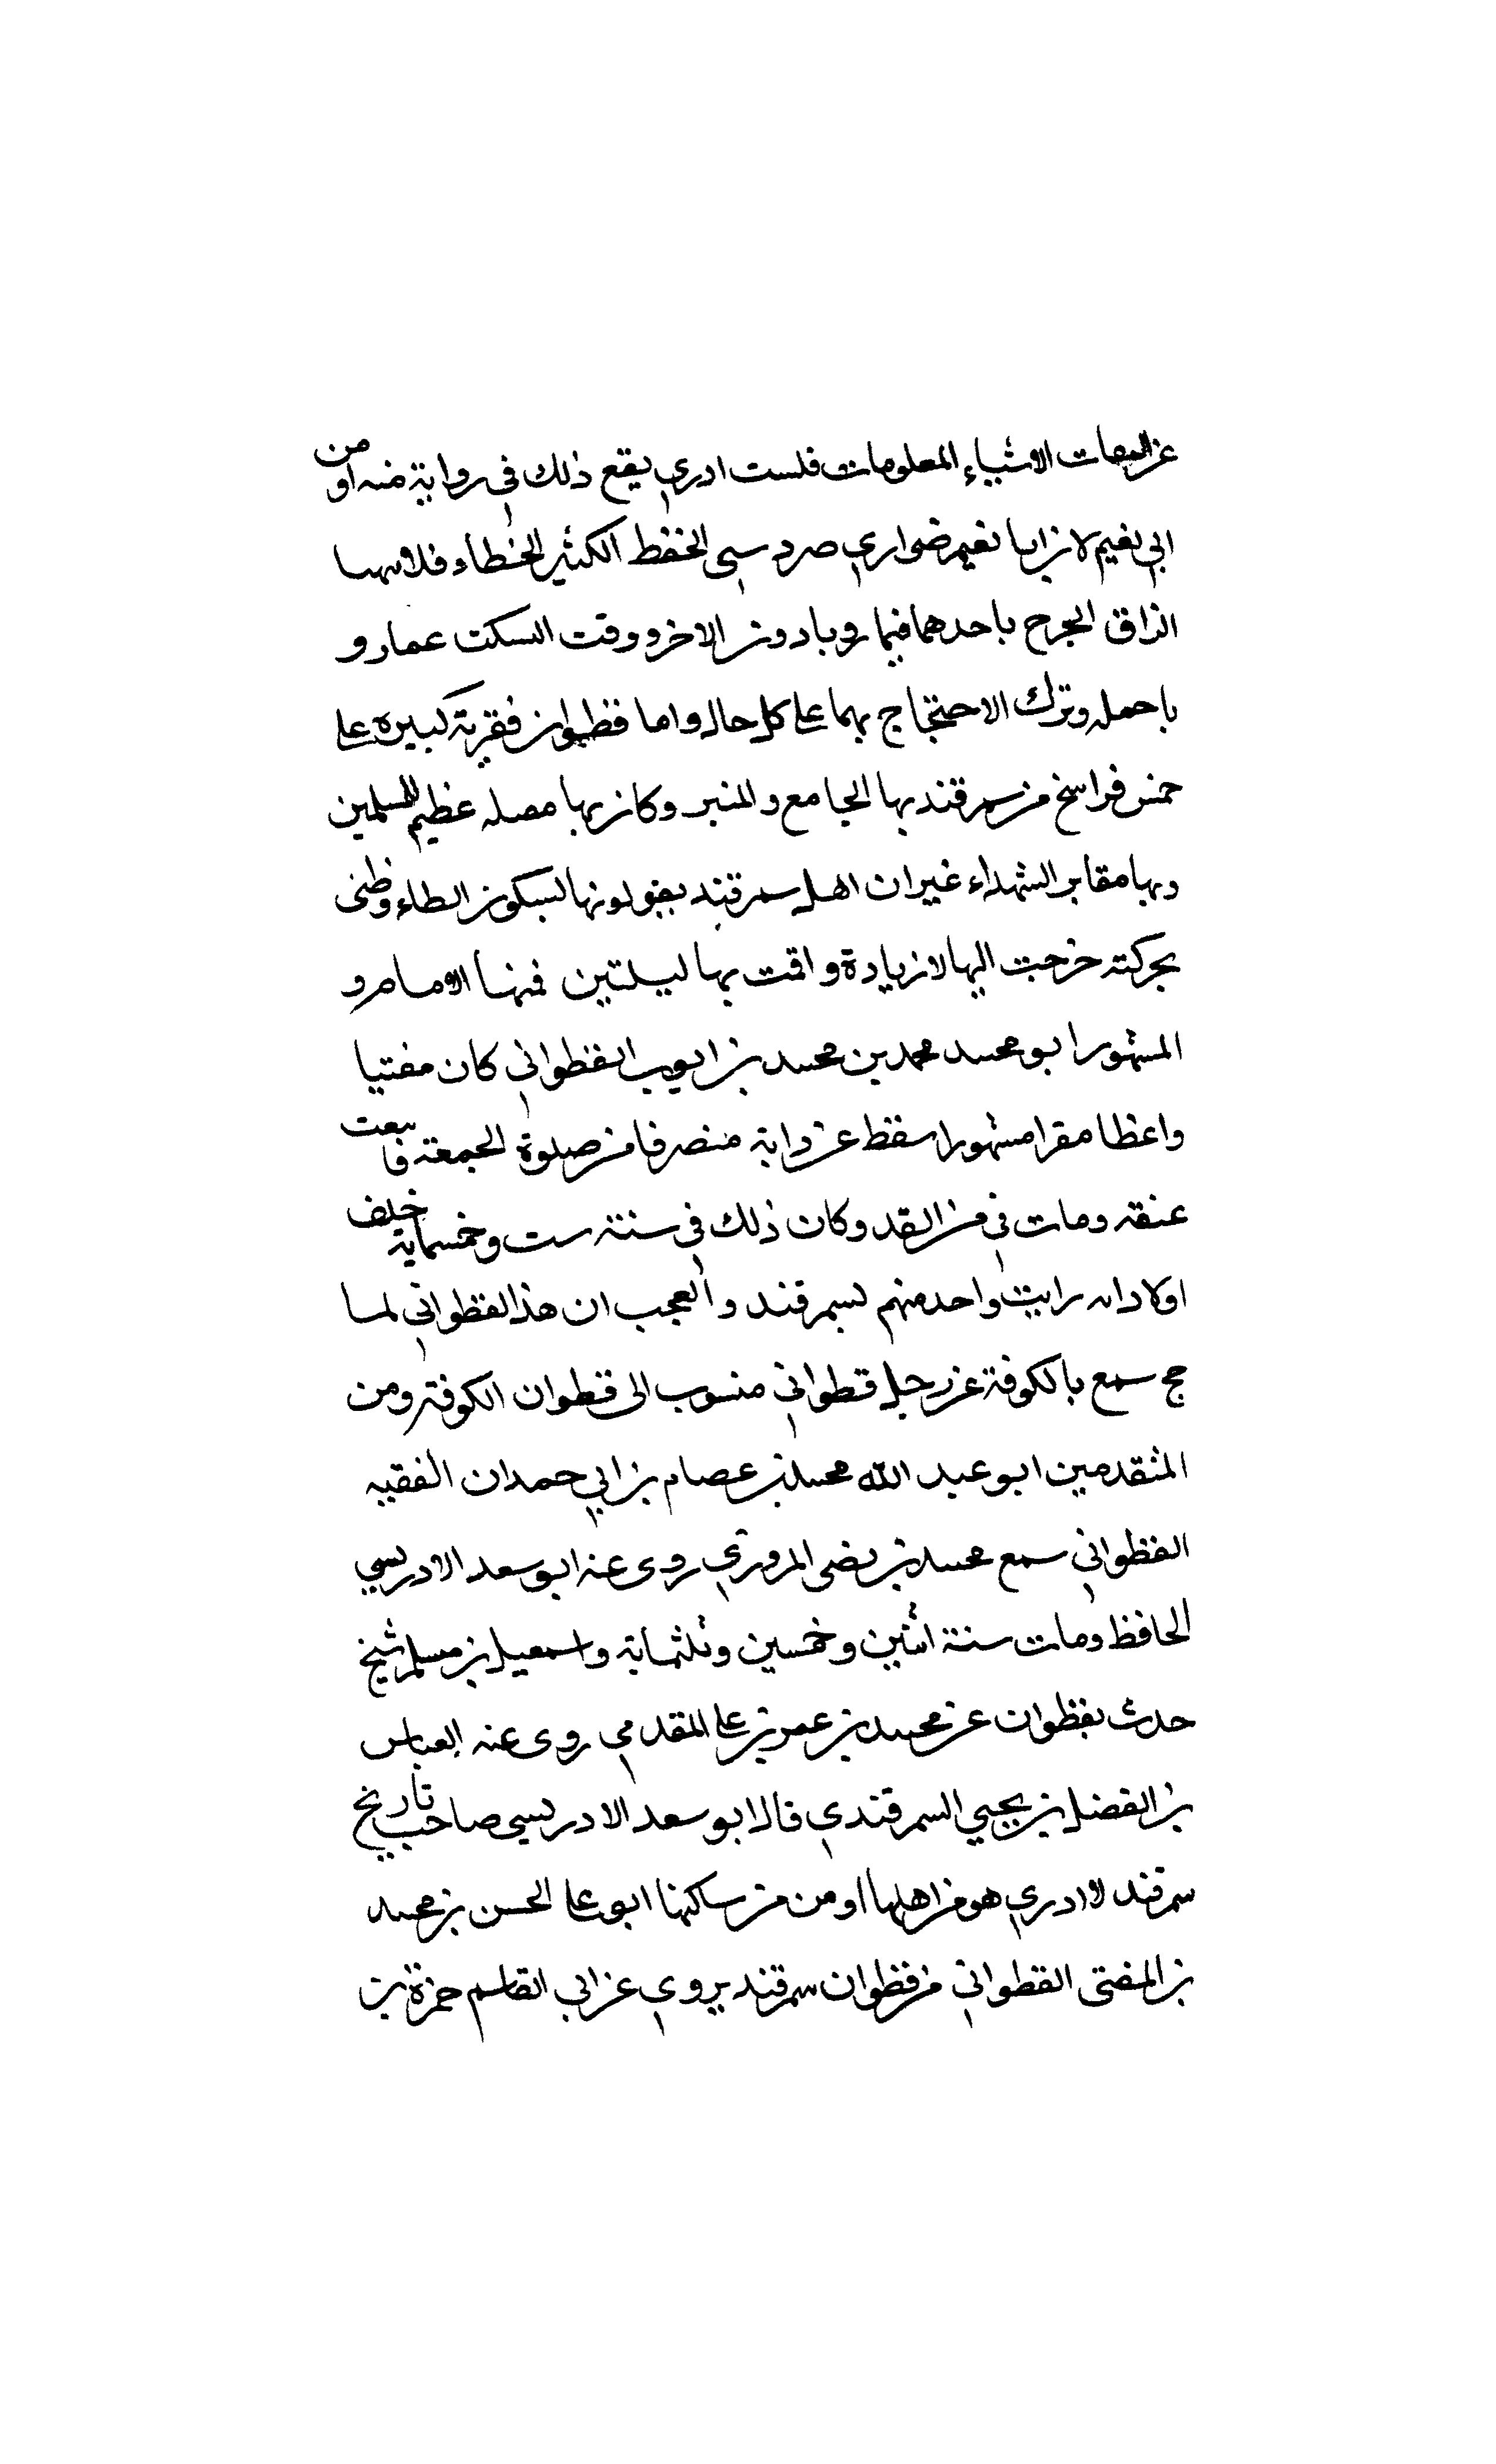 عن الثقات الاشياء المعلومات فلست ادري يقع ذلك في رواية منه او من
ابي نعيم لان ابا نعيم ضرار بن صرد سيى الحفظ الكثير الخطاء فلا يتهيا
الزاق الجرح باحدهما فيما رويا دون الاخر ووقت السكت عمار و
باحمله وترك الاحتجاج بهما على كل حال واما قطوان فقرية كبيرة على
خمس فراسخ من سمرقند بها الجامع والمنبر وكان بها مصله عظيم للمسلمين
وبها مقابر الشهداء غير ان اهل سمرقند يقولونها بسكون الطاء وظنى
بحركته خرجت اليها لازيادة واقمت بها ليلتين فمنها الامام و
المشهور ابو محمد محمد بن محمد بن ايوب القطواني كان مفتيا
واعظا مقرا مشهورا سقط عن دابة منصرفا من صلوة الجمعة فا نبعت
عنقه ومات في من القد وكان ذلك في سنة ست وخمسماية خلف
اولادا له رايت واحد منهم بسمرقند والعجب ان هذا القطواني لما
حج سمع بالكوفة عن رجل قطواني منسوب الى قطوان الكوفة ومن
المتقدمين ابو عبد الله محمد بن عصام بن ابي حمدان الفقيه
القطواني سمع محمد بن نصر المروزي روى عنه ابو سعد الادريسي
الحافظ ومات سنة اثنين وخمسين وثلثماية واسمعيل بن مسلم شيخ
حدث بقطوان عن محمد بن عمر بن على المقدمي روى عنه العباس
بن الفضل بن يحيي السمرقندي قال ابو سعد الادريسي صاحب تاريخ
سمرقند لا ادري هو من اهلها او من من ساكنها ابو على الحسن بن محمد
بن المفتى القطواني من قطوان سمرقند يروي عن ابي القاسم حمزة بن